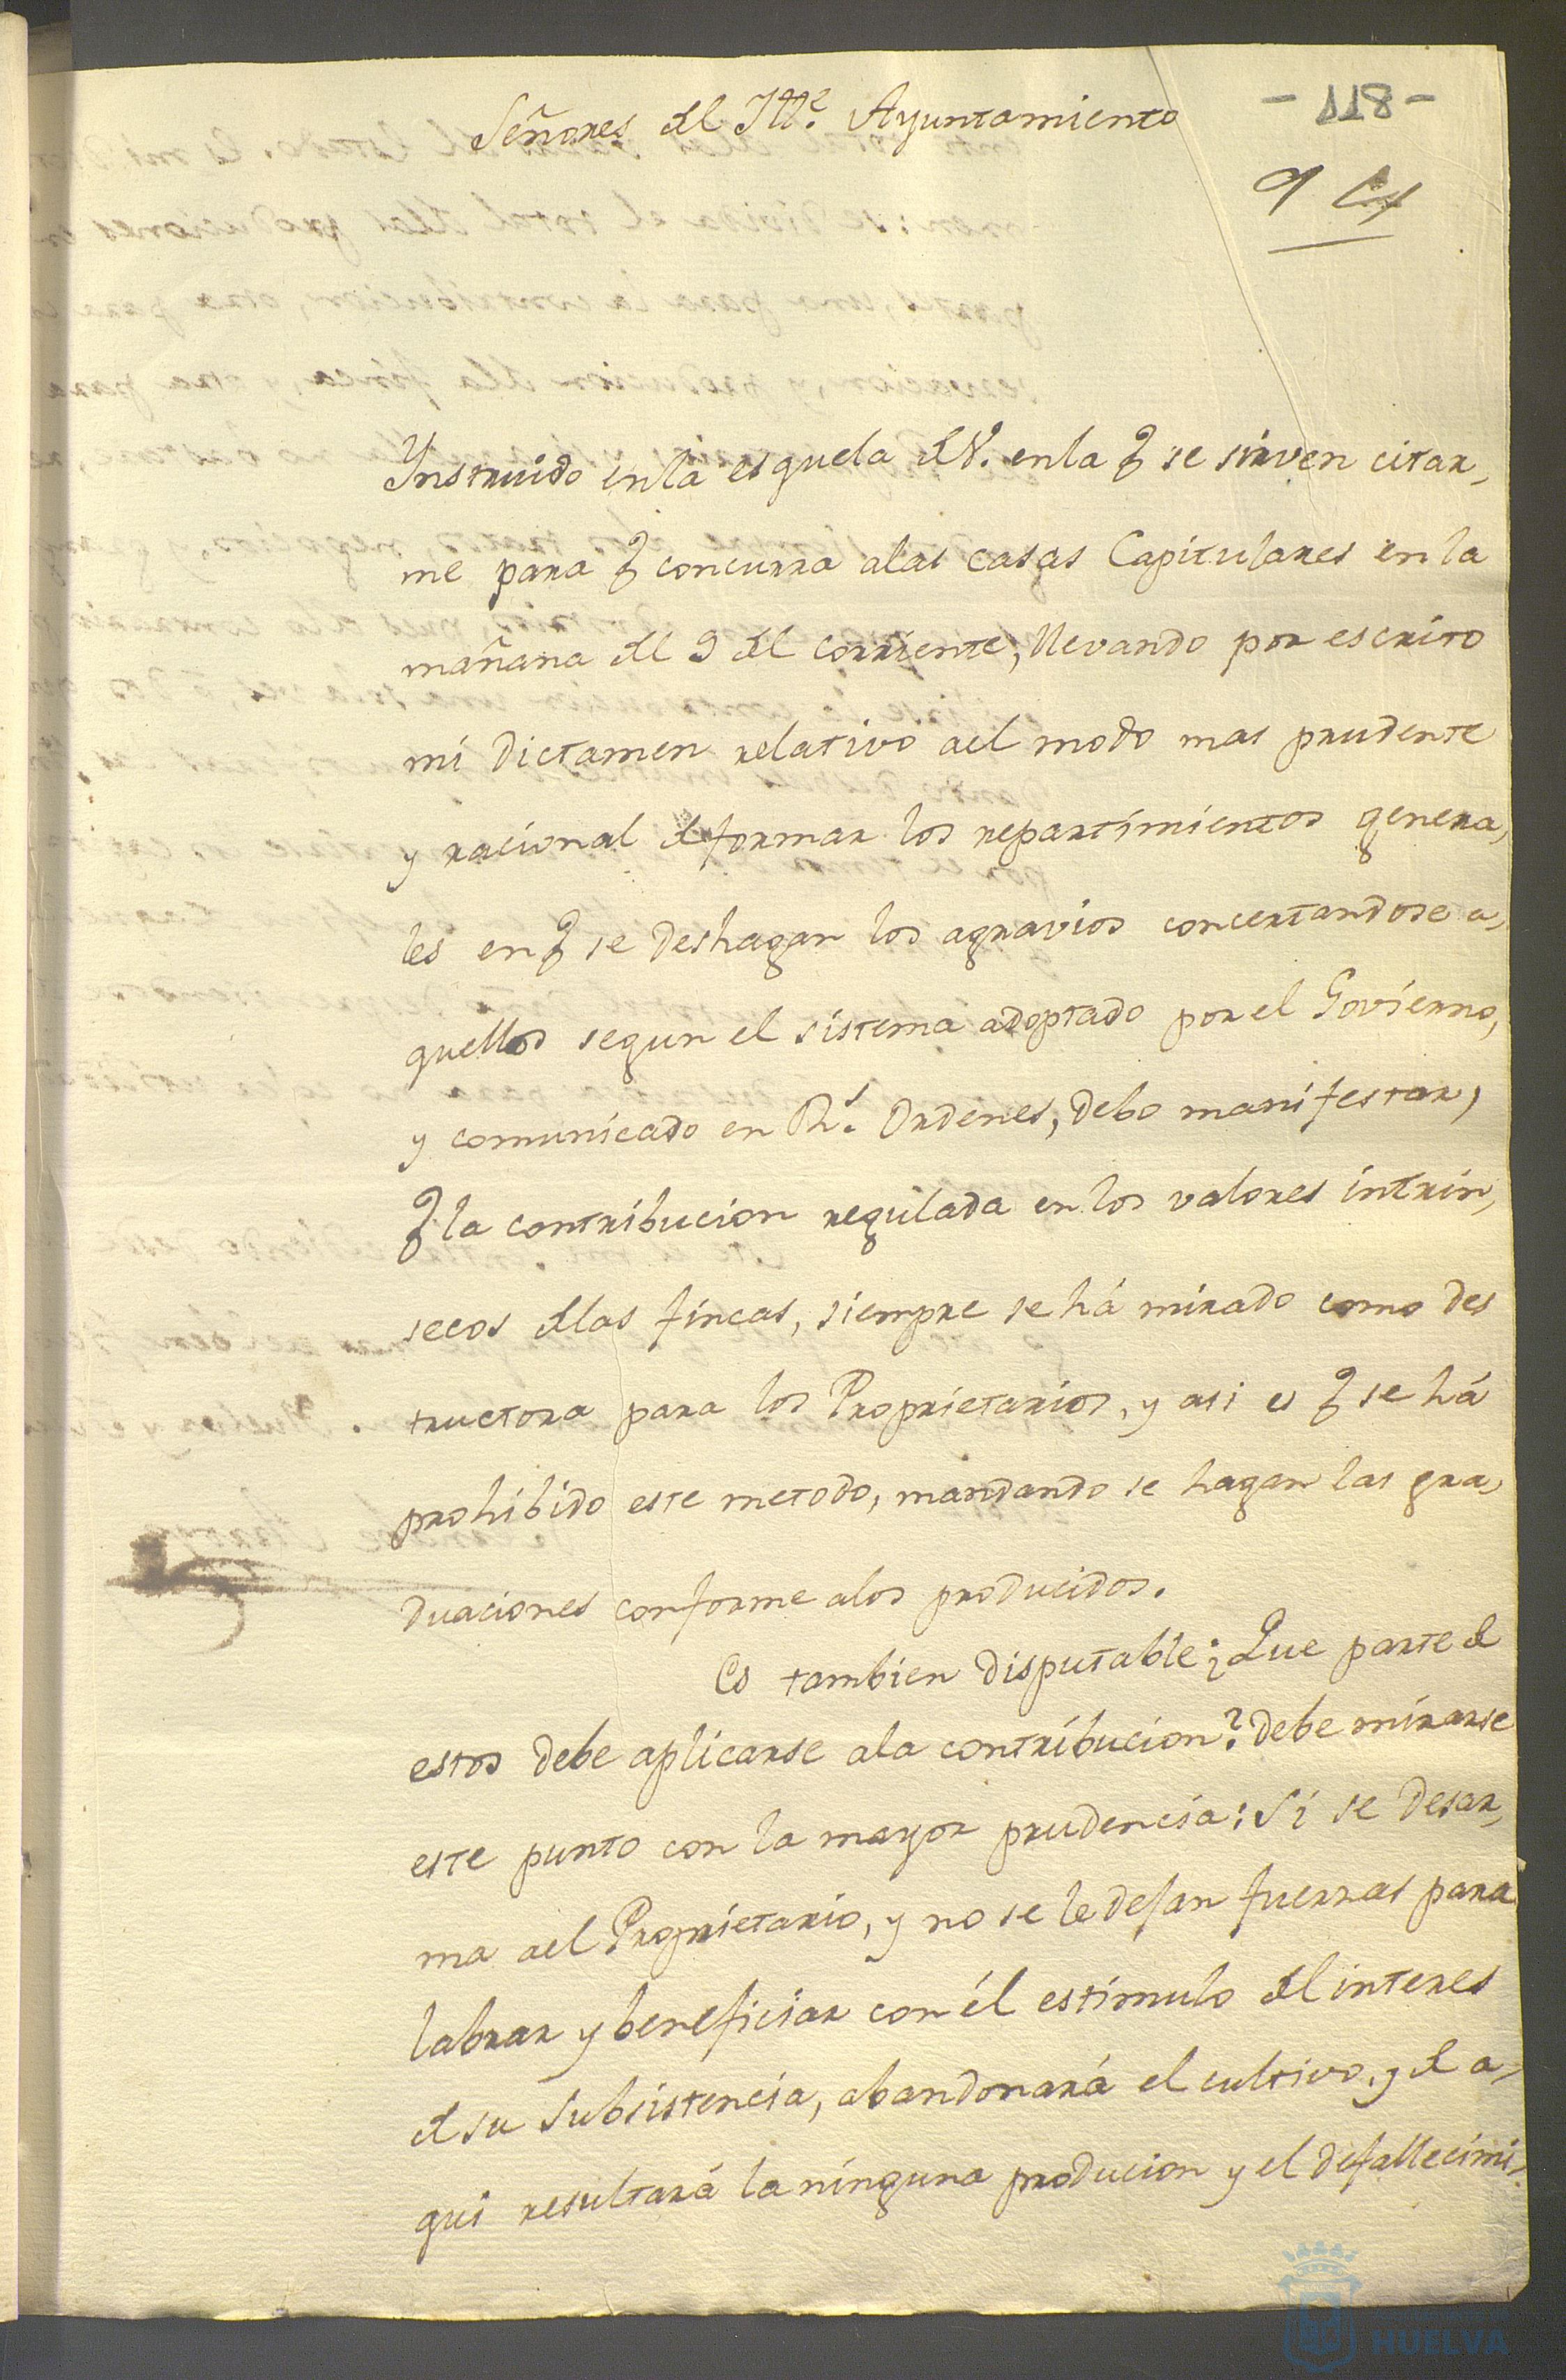 - 118 -
Señores del Ille. Ayuntamiento
9
Ynstruido en la esquela d V. en la q se sirven citar,
me para q concurra alas casas Capitulares en la
mañana del 9 del corriente, llevando por escrito
mi dictamen relativo ael modo mas prudente
y racional de formar los repartimientos genera,
les en q se deshagan los agravios concertandose a,
quellos segun el sistema adoptado por el Govierno,
y comunicado en Rs. Ordenes, debo manifestar,
q la contribucion regulada en los valores intrin,
secos dlas fincas, siempre se há mirado como des
tructora para los Proprietarios, y asi es q se há
prohibido este metodo, mandando se hagan las gra,
duaciones conforme alos producidos.
Es tambien disputable: ¿Que parte de
estos debe aplicarse ala contribucion? debe mirarse
este punto con la mayor prudencia: Si se desar,
ma ael Proprietario, y no se le dejan fuerzas para
labrar y beneficiar con él estimulo del interes
de su subsistencia, abandonará el cultivo, y de a,
qui resultará la ninguna producion y el defallecimi,
HUELVA